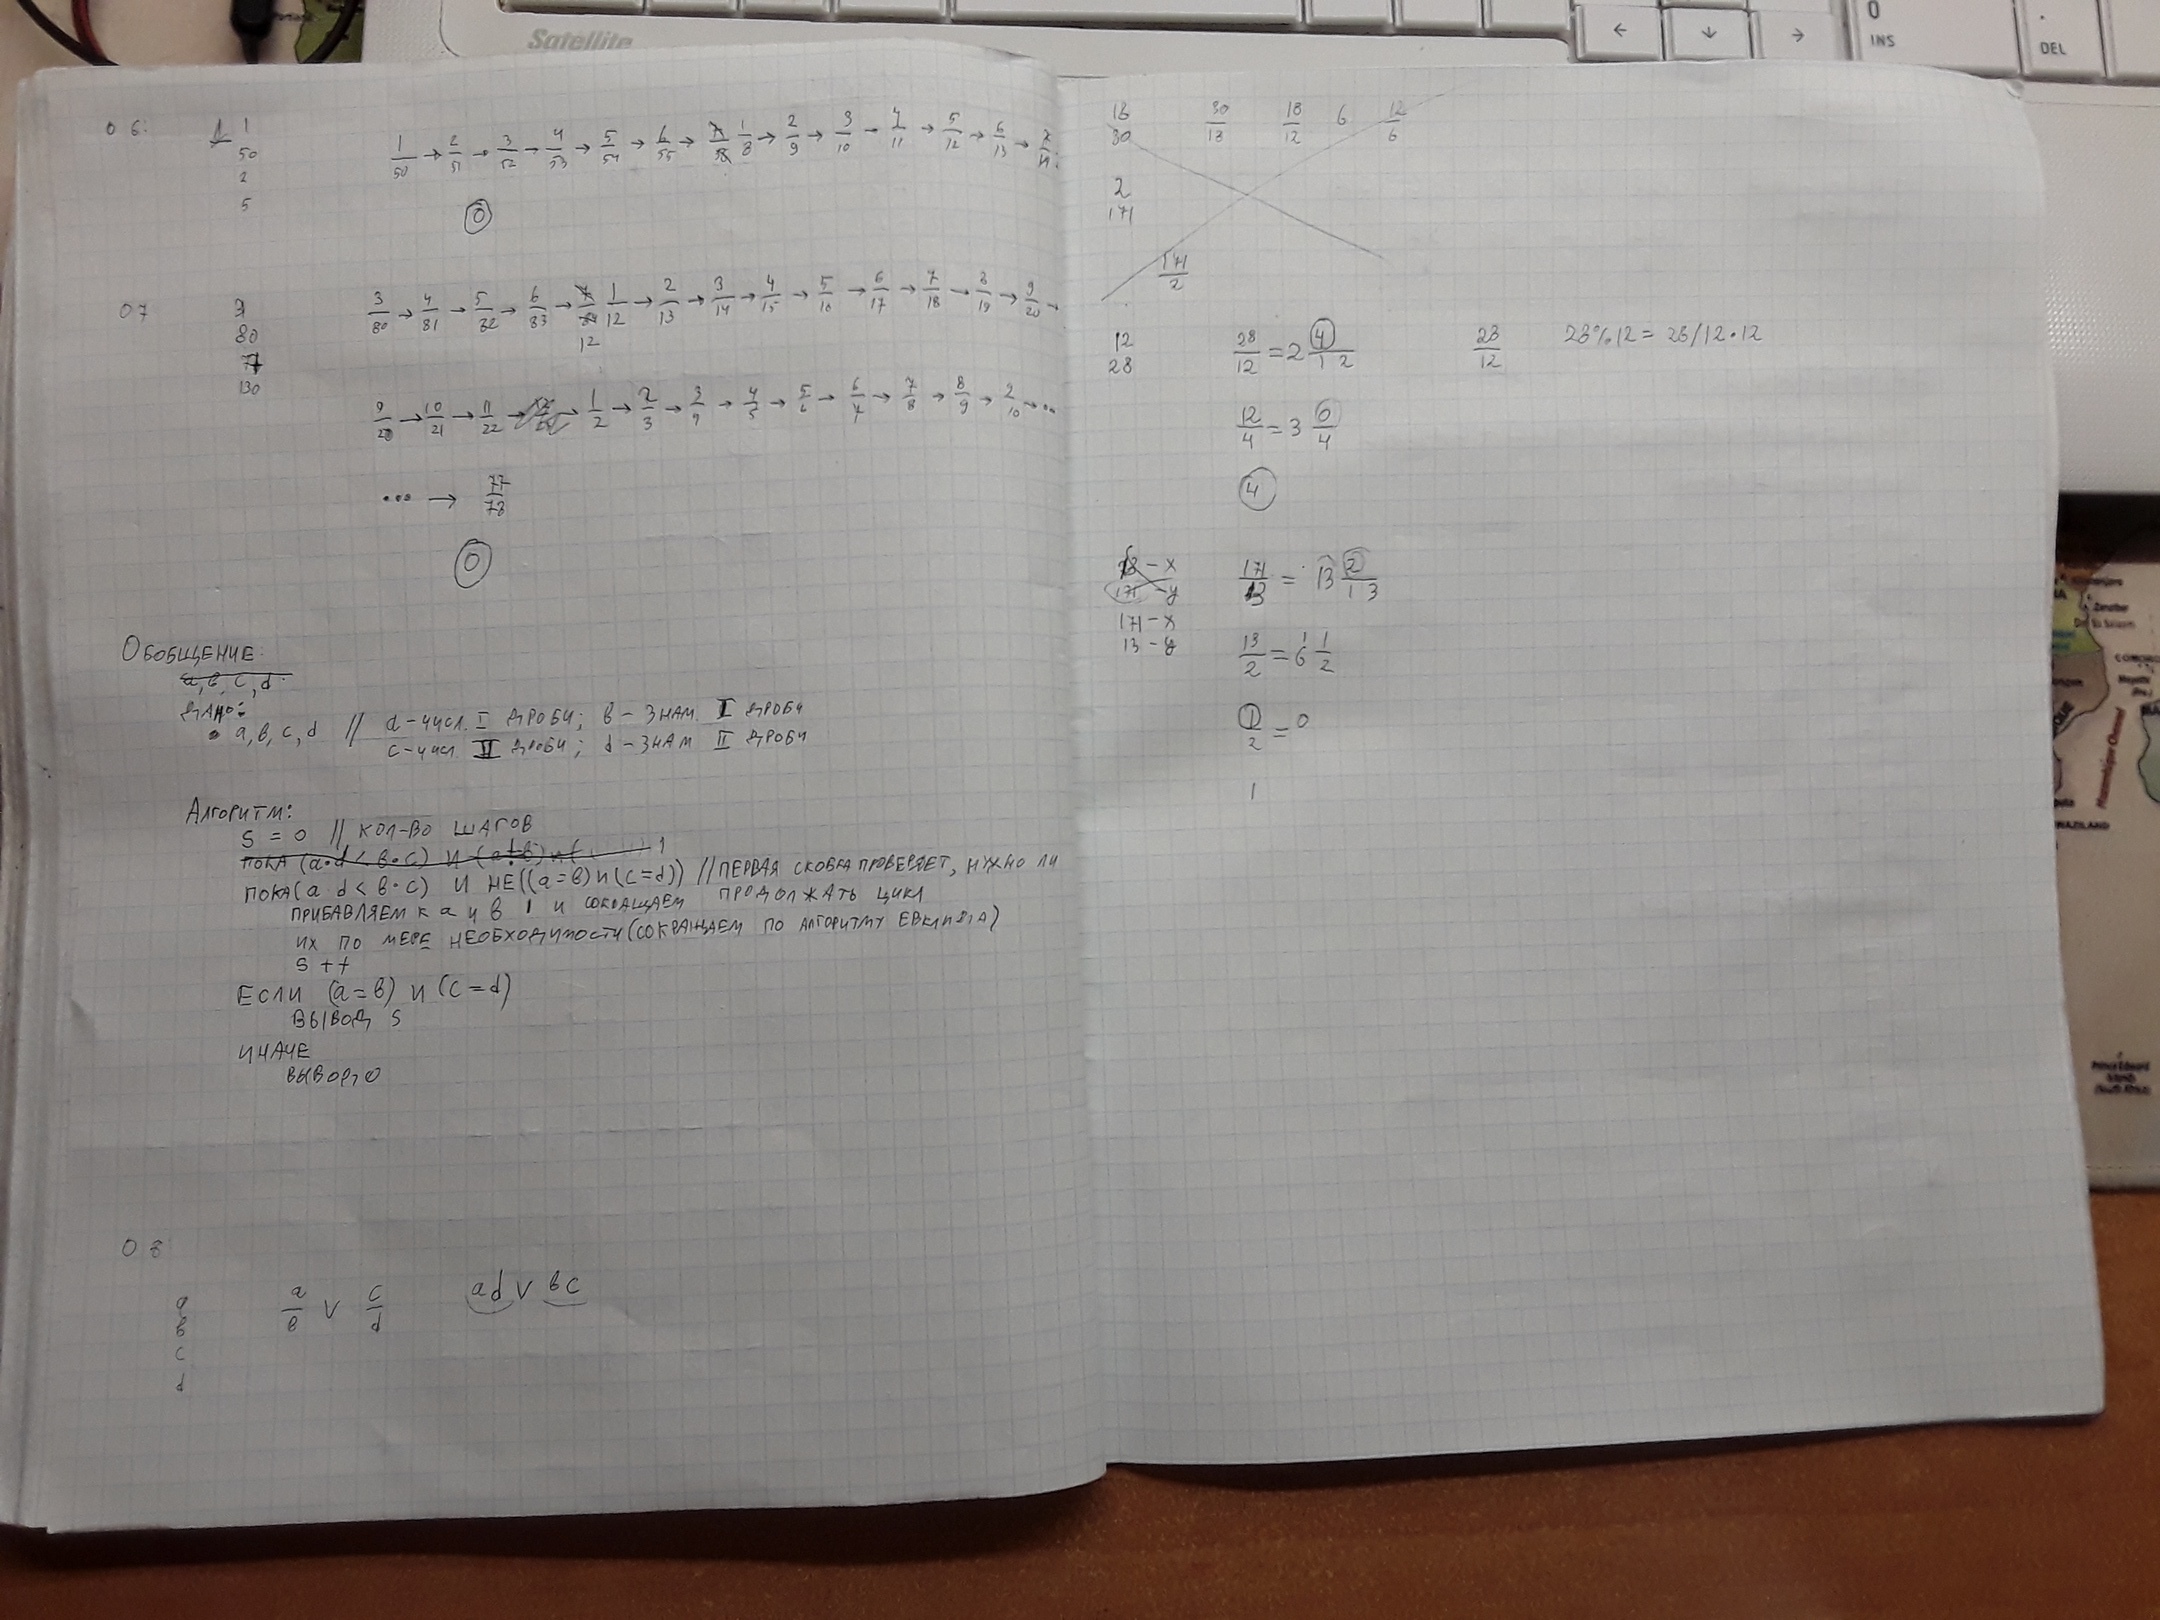 Satellite
0
INS
DEL
06:
1
50
2
5
1/50 → 2/51 → 3/52 → 4/53 → 5/54 → 6/55 → 1/8 → 2/9 → 3/10 → 4/11 → 5/12 → 6/13 → 7/14
0
07
80
130
3/80 → 4/81 → 5/82 → 6/83 → 7/84 1/12 → 2/13 → 3/14 → 4/15 → 5/16 → 6/17 → 7/18 → 8/19 → 9/20 →
12
9/20 → 10/21 → 11/22 → 1/2 → 2/3 → 3/4 → 4/5 → 5/6 → 6/7 → 7/8 → 8/9 → 9/10 → ...
... → 77/78
0
Обобщение:
a, в, c, d
Дано:
a, в, c, d // a – числ. I дроби; в – знам. I дроби
c – числ II дроби; d – знам II дроби
Алгоритм:
S = 0 // кол-во шагов
пока (a·d < в·c) и (a≠в) и (
пока (a·d < в·c) и не((a=в) и (c=d)) // первая скобка проверяет, нужно ли
продолжать цикл
прибавляем к a и в 1 и сокращаем
их по мере необходимости (сокращаем по алгоритму Евклида)
S++
Если (a=в) и (c=d)
вывод S
иначе
вывод 0
08
a
в
c
d
a/в V c/d
ad V вc
18
30
30/18
18/12
6
12/6
2
171
171/2
12
28
28/12 = 2 4/12
28/12
28%12 = 28/12·12
12/4 = 3 0/4
4
13 – x
171 – y
171 – x
13 – y
171/13 = 13 2/13
13/2 = 6 1/2
1/2 = 0
1
SWAZILAND
Mozambique Channel
Prince Edward
Islands
(South Africa)